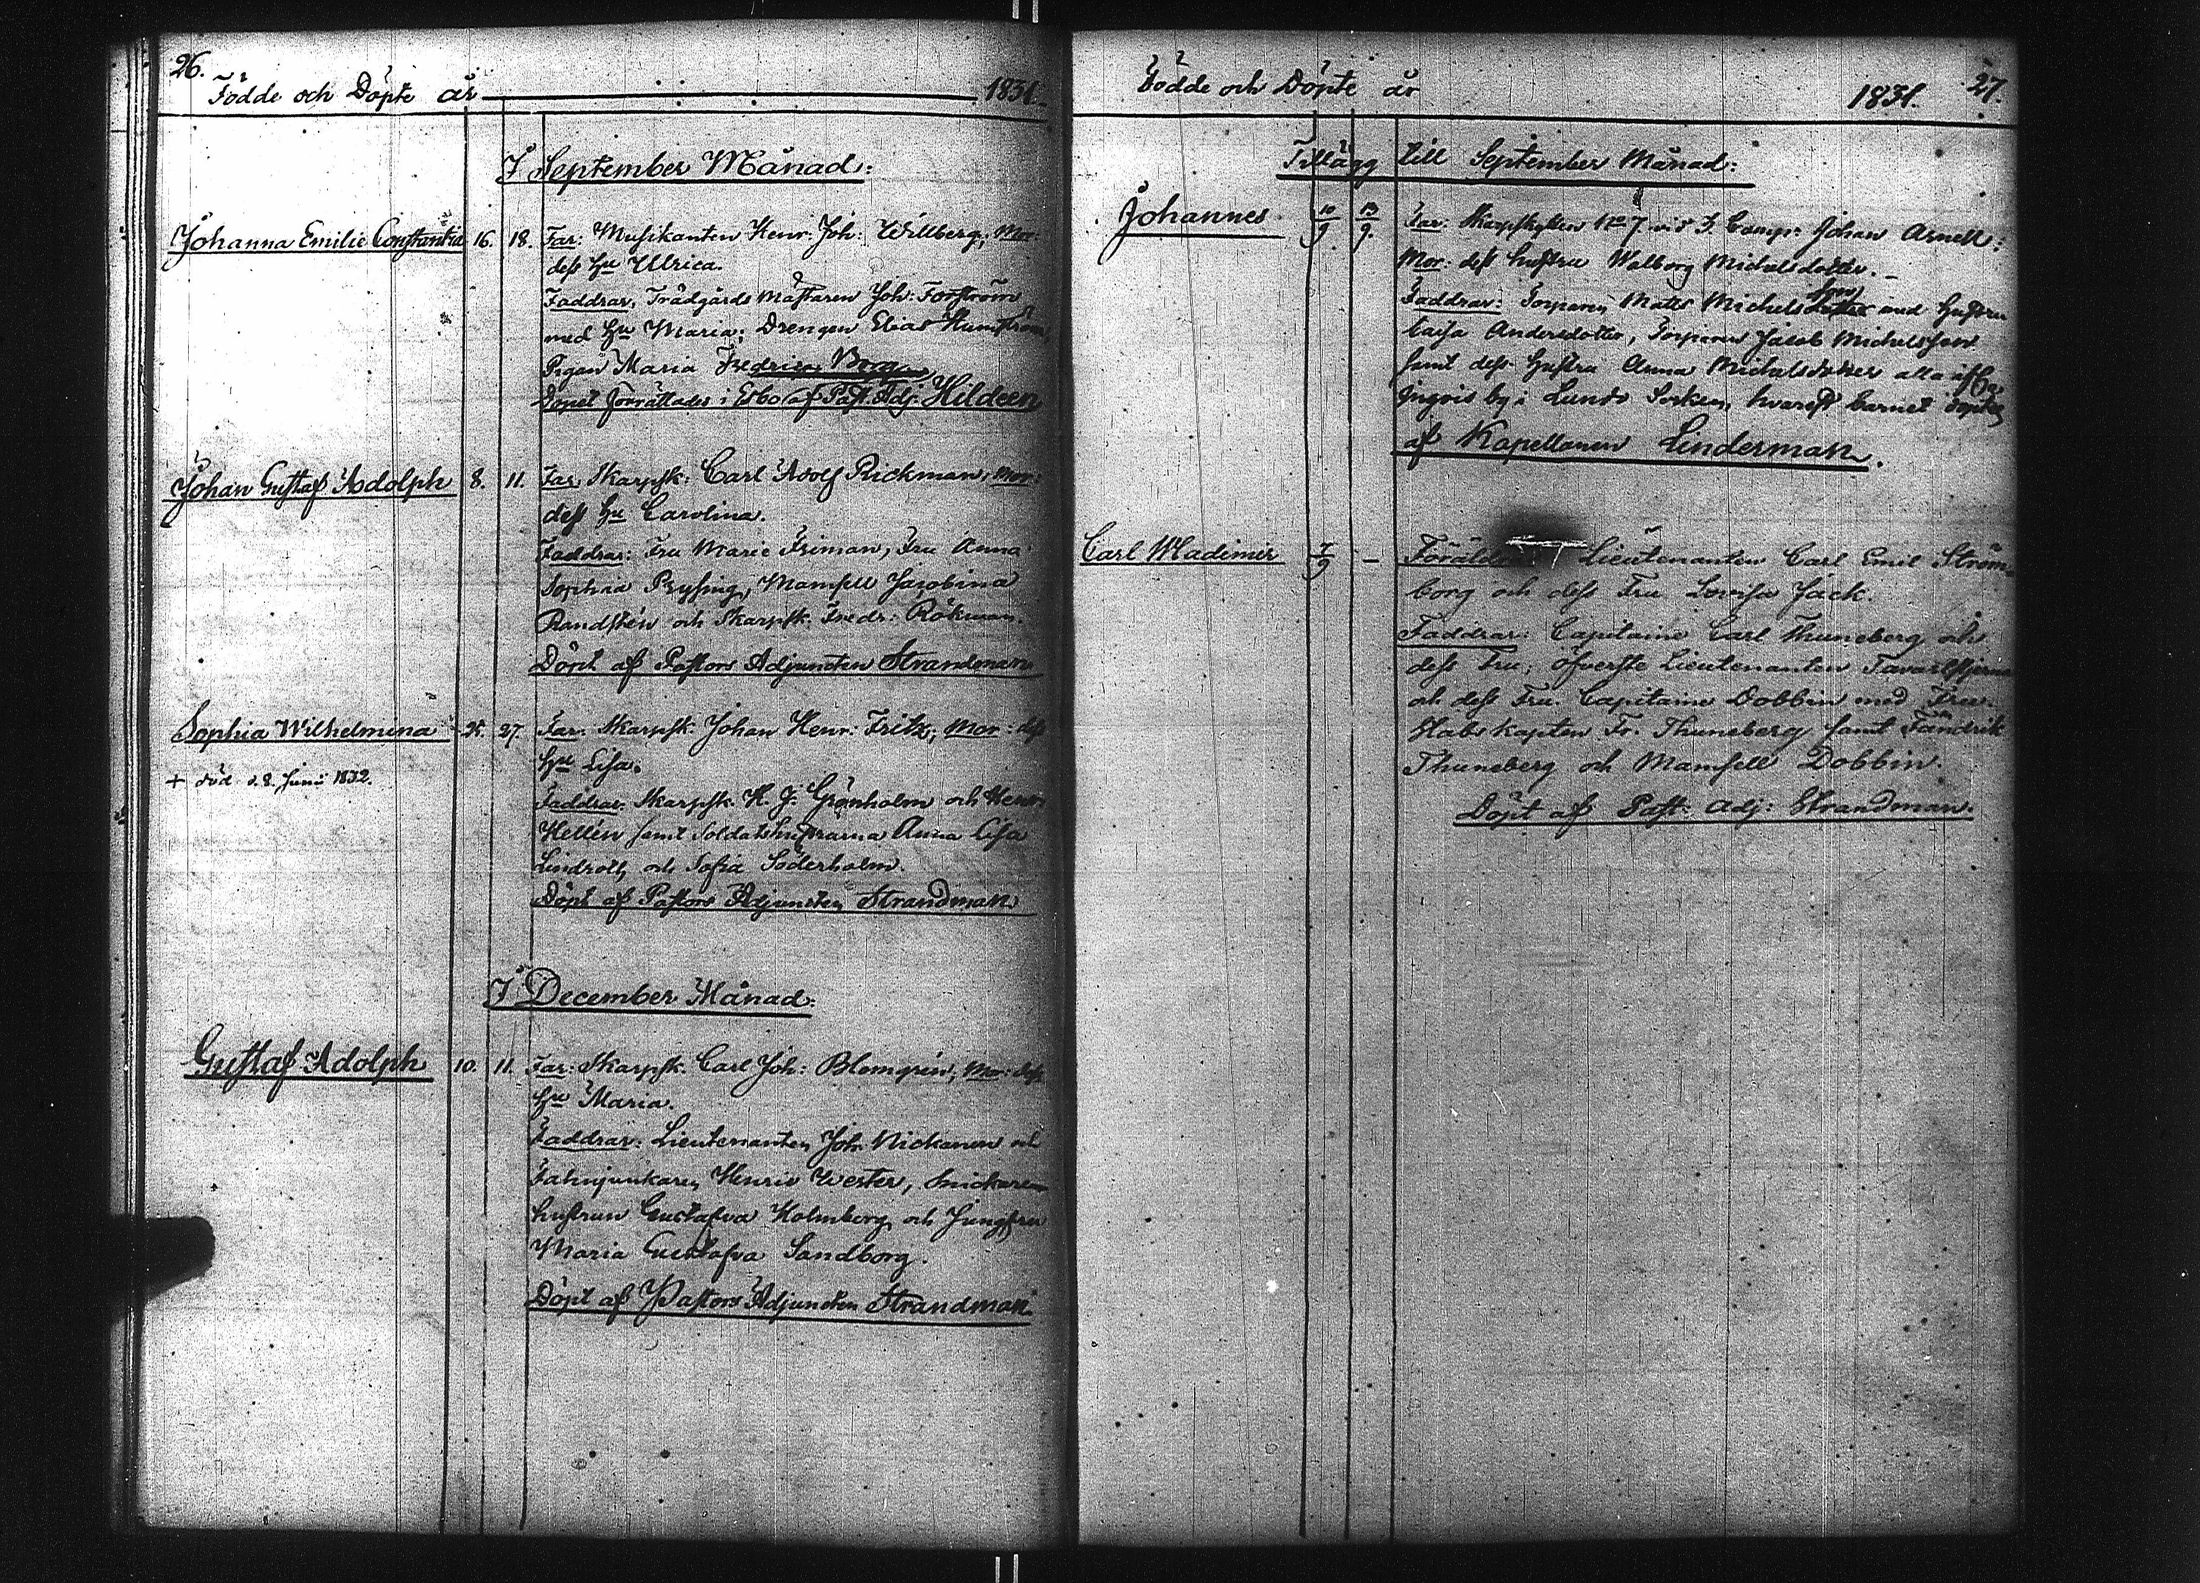 26.
Födde och Döpte år 1831.
I September Månad:
Johanna Emilie Constantia 16. 18. Far: Musikanten Henr: Joh: Willberg; Mor:
dess Hu Ulrica.
Faddrar, Trädgårds Mästaren Joh: Forström
med Hu Maria; Drengen Elias
Pigan Maria Fredrica Borg
Dopet förrättades i Esbo af Past. Adj. Hildeen
Johan Gustaf Adolph 8. 11. Far Skarpsk: Carl Adolf Rickman, Mor:
dess Hu Carolina.
Faddrar: Fru Marie Friman, Fru Anna
Sophia Mamsell Jacobina
Randsten och Skarpsk: Fredr: Rökman.
Döpt af Pastors Adjuncten Strandman
Sophia Wilhelmina 25. 27. Far: Skarpsk. Johan Henr: Fritz; Mor: dess
Hu Lisa.
+ död d. 8. Junii 1832.
Faddrar: Skarpsk. H. J. Grönholm och Henr:
Hellén samt Soldatshustrurna Anna Lisa
Lindroth och Sofia Söderholm.
Döpt af Pastors Adjuncten Strandman
I December Månad:
Gustaf Adolph 10. 11. Far: Skarpsk. Carl Joh: Blomgrén; Mor: dess
Hu Maria.
Faddrar: Lieutenanten Joh. Nickanen och
Fahnjunkaren Henric Wester, Snickare
hustrun Gustafva Holmberg och Jungfru
Maria Gustafva Sandborg.
Döpt af Pastors Adjuncten Strandman
27.
Födde och Döpte år 1831.
Tillägg till September Månad:
Johannes 10/9. 13/9. Far: Skarpskytten No 7 vid 3. Comp: Johan Arnell:
Mor: dess hustru Walborg Michelsdotter.
Faddrar: Torparen Matts Michelsson med hustru
Caisa Andersdotter, Torparen Jacob Michelsson
samt dess hustru Anna Michelsdotter alla af
Ingvis by i Lundo Socken, hvarest barnet döptes
af Kapellanen Linderman.
Carl Wladimir 7/9 – Föräldrar Lieutenanten Carl Emil Ström-
borg och dess Fru Lovisa Jack.
Faddrar: Capitaine Carl Thuneberg och
dess Fru; öfverste Lieutenanten Tavaststjerna
och dess Fru. Capitaine Dobbin med Fru.
Stabskapten Fr. Thuneberg samt Fändrik
Thuneberg och Mamsell Dobbin.
Döpt af Past: Adj: Strandman.